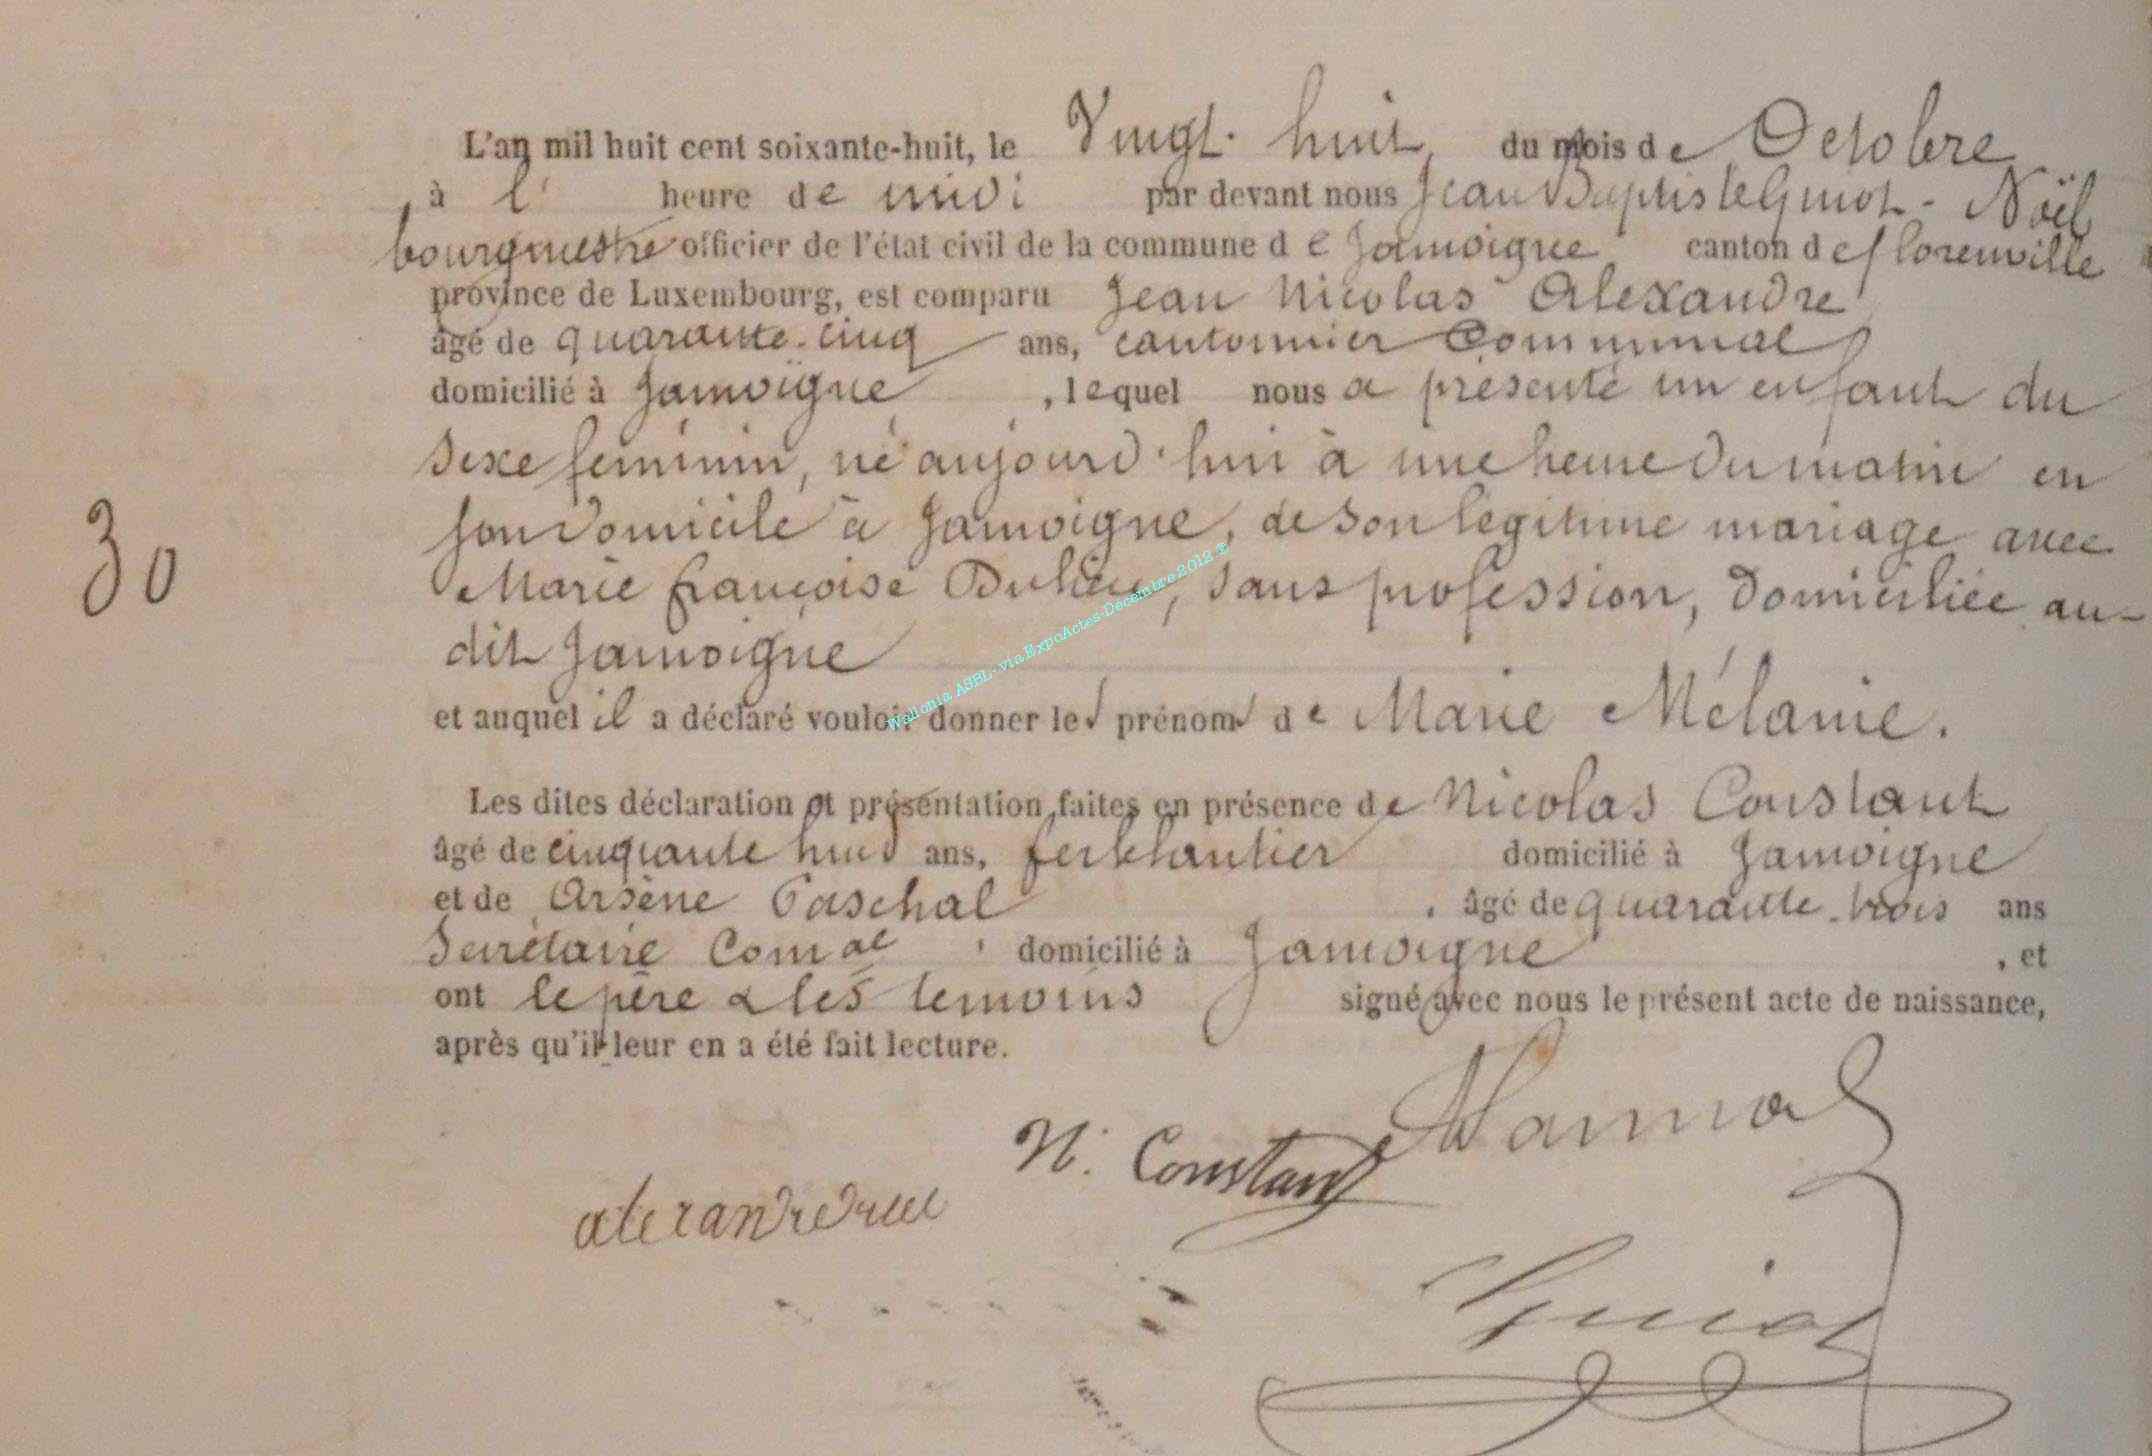 L'an mil huit cent soixante-huit, le Vingt-huit, du mois de Octobre
à l' heure de midi par devant nous Jean Baptiste Guiot-Noël
bourgmestre officier de l'état civil de la commune de Jamoigne canton de florenville
province de Luxembourg, est comparu Jean Nicolas Alexandre
âgé de quarante-cinq ans, cantonnier Communal
domicilié à Jamoigne, lequel nous a présenté un enfant du
sexe féminin, né aujourd'hui à une heure du matin en
son domicile à Jamoigne, de son légitime mariage avec
Marie françoise, sans profession, domiciliée au-
dit Jamoigne
et auquel il a déclaré vouloir donner les prénoms de Marie Mélanie.
Wallonia ASBL - via ExpoActes-Decembre 2012
30
Les dites déclaration et présentation faites en présence de Nicolas Constant
âgé de cinquante huit ans, ferblantier domicilié à Jamoigne
et de Arsène Paschal, âgé de quarante-trois ans
Secrétaire Comal domicilié à Jamoigne, et
ont le père & les témoins signé avec nous le présent acte de naissance,
après qu'il leur en a été fait lecture.
N. Constant
Guiot